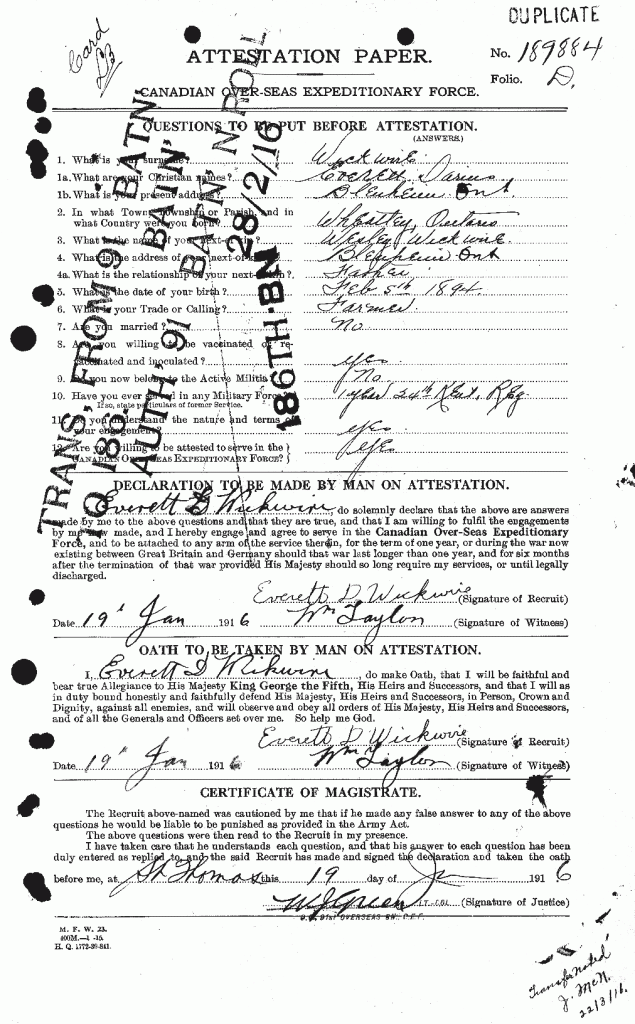 DUPLICATE
Card
ATTESTATION PAPER.
No. 189884
Folio. D.
CANADIAN OVER-SEAS EXPEDITIONARY FORCE.
QUESTIONS TO BE PUT BEFORE ATTESTATION.
(ANSWERS)
1. What is your surname? Wickwire
1a. What are your Christian names? Everett Darius
1b. What is your present address? Blenheim Ont
2. In what Town, Township or Parish, and in
what Country were you born? Wheatley, Ontario
3. What is the name of your next-of-kin? Wesley Wickwire
4. What is the address of your next-of-kin? Blenheim Ont
4a. What is the relationship of your next-of-kin? Father
5. What is the date of your birth? Feb 5th 1894
6. What is your Trade or Calling? Farmer
7. Are you married? No
8. Are you willing to be vaccinated or re-
vaccinated and inoculated? yes
9. Do you now belong to the Active Militia? No
10. Have you ever served in any Military Force? 1 year 24th Kent. Reg
If so, state particulars of former Service.
11. Do you understand the nature and terms of
your engagement? yes
12. Are you willing to be attested to serve in the
CANADIAN OVER-SEAS EXPEDITIONARY FORCE? yes
TRANS. FROM 91 BATN.
TO 186 BATN.
AUTH, 91 BATN, N. ROLL
186TH. BN 28/2/16
DECLARATION TO BE MADE BY MAN ON ATTESTATION.
I, Everett D Wickwire, do solemnly declare that the above are answers
made by me to the above questions and that they are true, and that I am willing to fulfil the engagements
by me now made, and I hereby engage and agree to serve in the Canadian Over-Seas Expeditionary
Force, and to be attached to any arm of the service therein, for the term of one year, or during the war now
existing between Great Britain and Germany should that war last longer than one year, and for six months
after the termination of that war provided His Majesty should so long require my services, or until legally
discharged.
Everett D Wickwire (Signature of Recruit)
Date 19th Jan 1916 Wm Taylor (Signature of Witness)
OATH TO BE TAKEN BY MAN ON ATTESTATION.
I, Everett D Wickwire, do make Oath, that I will be faithful and
bear true Allegiance to His Majesty King George the Fifth, His Heirs and Successors, and that I will as
in duty bound honestly and faithfully defend His Majesty, His Heirs and Successors, in Person, Crown and
Dignity, against all enemies, and will observe and obey all orders of His Majesty, His Heirs and Successors,
and of all the Generals and Officers set over me. So help me God.
Everett D Wickwire (Signature of Recruit)
Date 19th Jan 1916 Wm Taylor (Signature of Witness)
CERTIFICATE OF MAGISTRATE.
The Recruit above-named was cautioned by me that if he made any false answer to any of the above
questions he would be liable to be punished as provided in the Army Act.
The above questions were then read to the Recruit in my presence.
I have taken care that he understands each question, and that his answer to each question has been
duly entered as replied to, and the said Recruit has made and signed the declaration and taken the oath
before me, at St Thomas this 19 day of Jan 1916
W J Green LT-COL (Signature of Justice)
O.C. 91ST OVERSEAS BN. C.E.F.
M. F. W. 23.
H. Q. 1772-39-841.
Transfer noted
J. McN.
22/3/16.